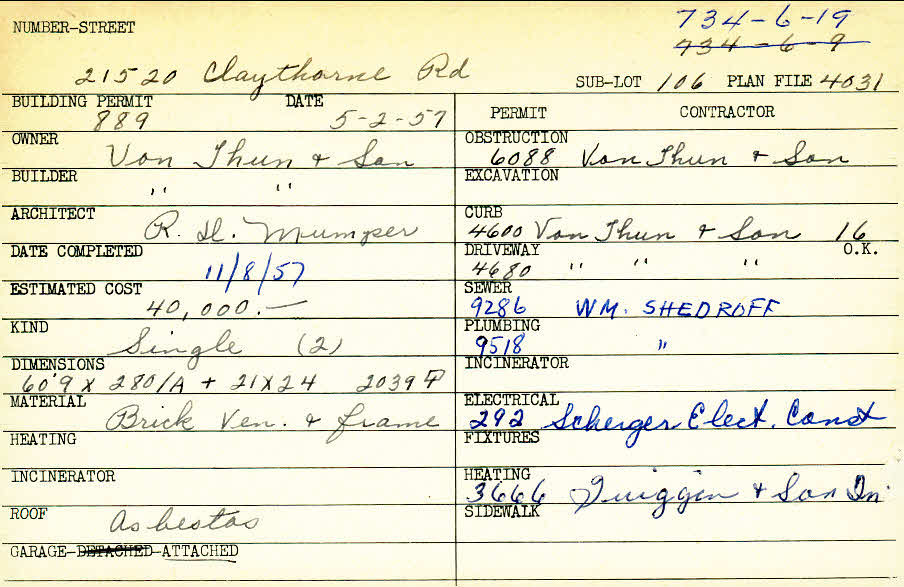 NUMBER-STREET
734-6-19
734-6-9
21520 Claythorne Rd
SUB-LOT 106 PLAN FILE 4031
BUILDING PERMIT DATE
889 5-2-57
OWNER
Von Thun & Son
BUILDER
" "
ARCHITECT
R. H. Mumper
DATE COMPLETED
11/8/57
ESTIMATED COST
40,000.—
KIND
Single (2)
DIMENSIONS
60'9 X 280/A + 21X24 2039
MATERIAL
Brick Ven. & frame
HEATING
INCINERATOR
ROOF
Asbestos
GARAGE-DETACHED-ATTACHED
PERMIT CONTRACTOR
OBSTRUCTION
6088 Von Thun & Son
EXCAVATION
CURB
4600 Von Thun & Son 16
DRIVEWAY O.K.
4680 " " "
SEWER
9286 WM. SHEDROFF
PLUMBING
9518 "
INCINERATOR
ELECTRICAL
292 Scherger Elect. Const
FIXTURES
HEATING
3666 Quiggin & Son In
SIDEWALK